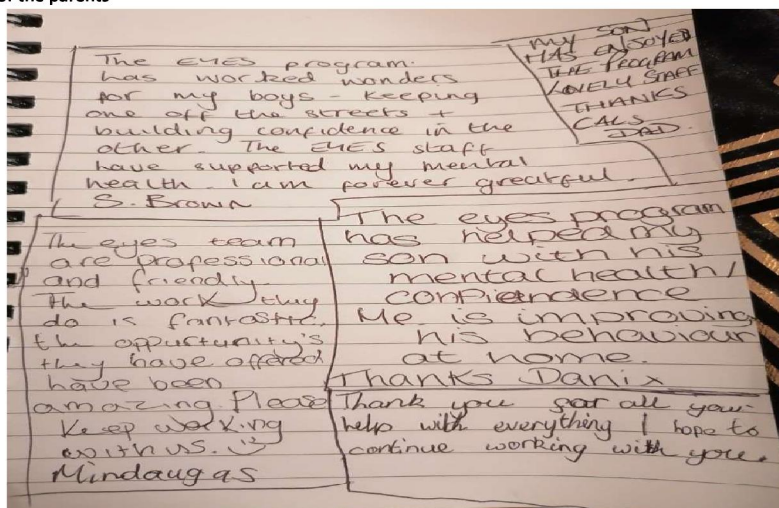 of the parents
The EYES program.
has worked wonders
for my boys - keeping
one off the streets +
building confidence in the
other. The EYES staff
have supported my mental
health. I am forever greatful.
S. Brown
MY SON
HAS ENJOYED
THE PROGRAM
LOVELY STAFF
THANKS
CALS
DAD.
The eyes team
are professional
and friendly.
The work they
do is fantastic.
the oppurtunity's
they have offered
have been
amazing. Please
Keep working
with us. :)
Mindaugas
The eyes program
has helped my
son with his
mental health/
Me is improving
his behaviour
at home.
Thanks Dani x
Thank you for all your
help with everything I hope to
continue working with you.